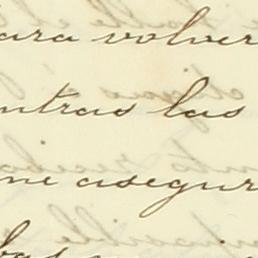 ara volver
ntras las
me asegur
bas